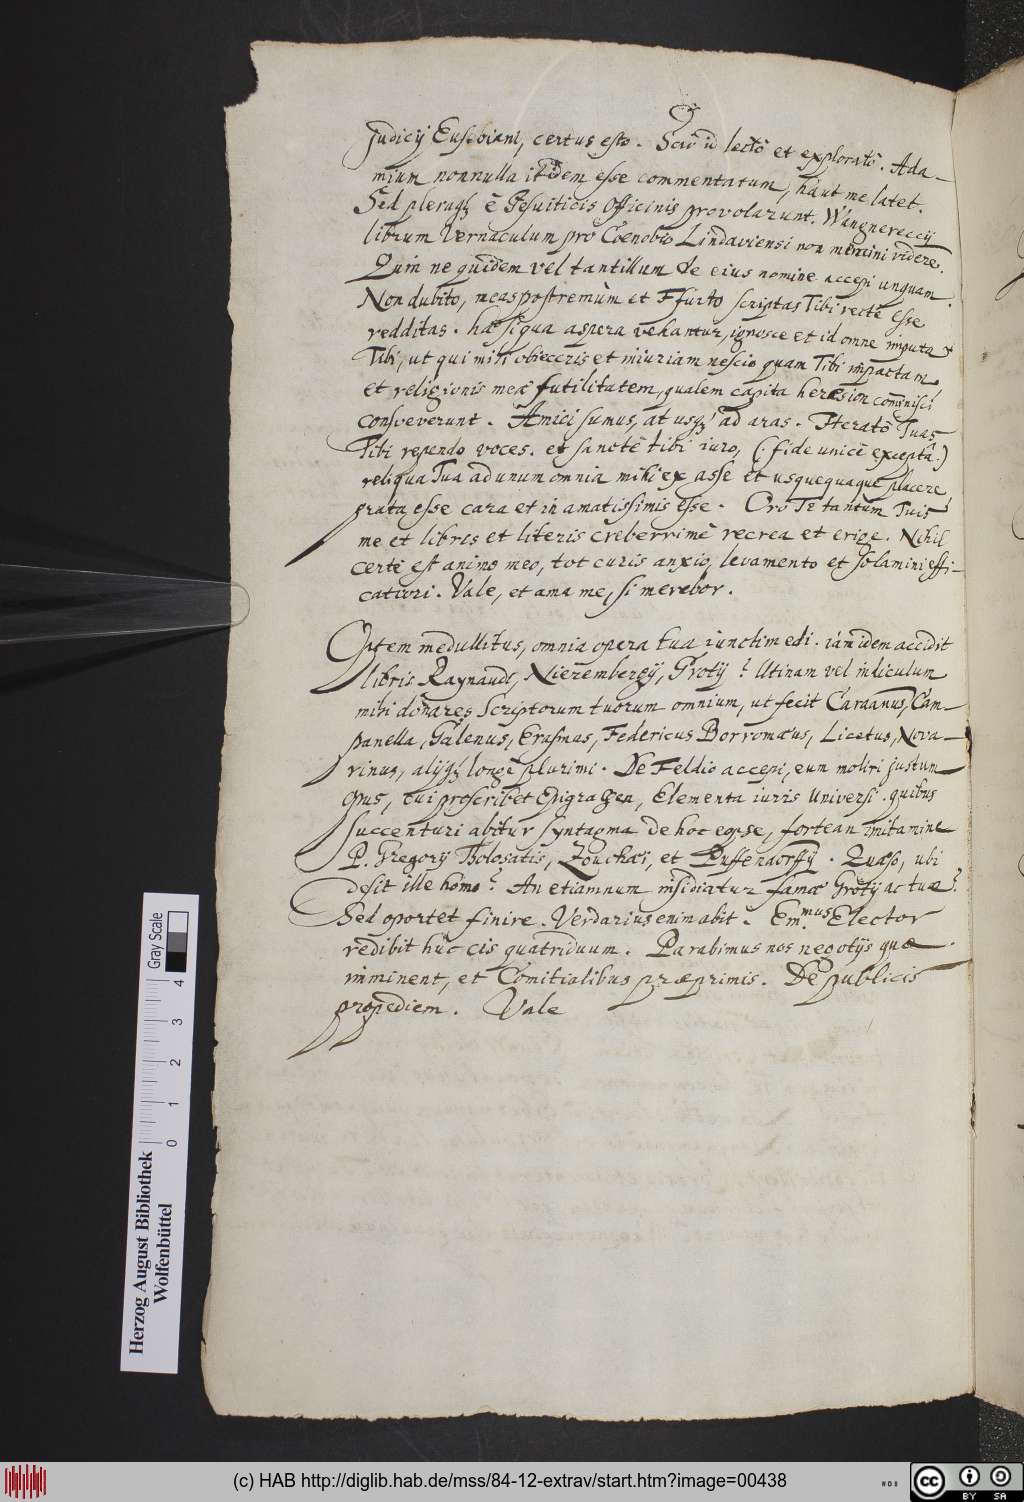 Judicij Eusebiani, certus esto. Scio id lectō et exploratō. Ada-
mium nonnulla itidem esse commentatum, haut me latet.
Sed pleraqꝫ è Jesuiticis Officinis provolarunt. Wangnereccij
librum Vernaculum pro Coenobio Lindaviensi non memini videre.
Quin ne quidem vel tantillum de eius nomine accepi unquam.
Non dubito, meas postremùm et Ffurto scriptas Tibi rectè esse
redditas. hae si qua aspera vehantur, ignosce et id omne imputa
Tibi, ut qui mihi obieceris et iniuriam nescio quam Tibi impactam,
et religionis meae futilitatem, qualem capita heresion cominisci
consveverunt. Amici sumus, at usqꝫ ad aras. Iteratò Tuas
Tibi rependo voces. et sanctè tibi iuro, (: fide unicè exceptâ:)
reliqua Tua ad unum omnia mihi ex asse et usquequaque placere,
grata esse cara et in amatissimis esse. Oro Te tantum Tuis
me et libris et literis creberrimè recrea et erige. Nihil
certè est animo meo, tot curis anxio, levamento et solamini effi-
catiori. Vale, et ama me, si merebor.
Optem medullitus, omnia opera tua iunctim edi. iam idem accidit
libris Raynaudi, Nierembergij, Grotij? Utinam vel indiculum
mihi donares Scriptorum tuorum omnium, ut fecit Cardanus, Cam-
panella, Galenus, Erasmus, Federicus Borromaeus, Licetus, Nova-
rinus, alijqꝫ longè plurimi. De Feldio accepi, eum moliri justum
opus, cui proscribet Epigraphen, Elementa iuris Universi. quibus
succenturiabitur syntagma de hoc eopse, fortean imitamine
P. Gregorij Tholosatis, Zouchaei, et Puffendorffij. Quaeso, ubi
desit ille homo? An etiamnum insidiatur famae Grotij ac tuae?
Sed oportet finire. Verdarius enim abit. Em.mus Elector
redibit hûc cis quatriduum. Parabimus nos negotijs quae
imminent, et Comitialibus praeprimis. De publicis
propediem. Vale
Herzog August Bibliothek
Wolfenbüttel
0 1 2 3 4
Gray Scale
(c) HAB http://diglib.hab.de/mss/84-12-extrav/start.htm?image=00438
cc BY SA